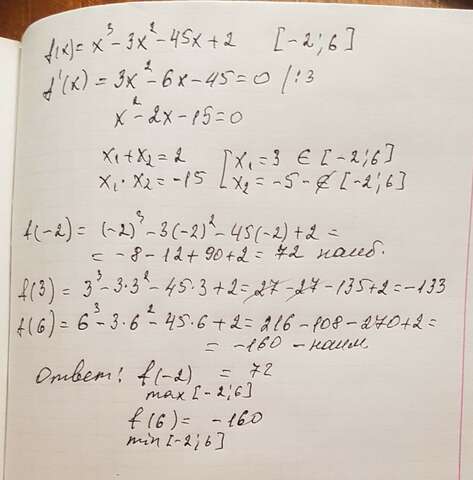 f(x) = x³ - 3x² - 45x + 2 [-2; 6]
f'(x) = 3x² - 6x - 45 = 0 /:3
x² - 2x - 15 = 0
x₁ + x₂ = 2 [ x₁ = 3 ∈ [-2; 6]
x₁ · x₂ = -15 [ x₂ = -5 - ∉ [-2; 6]
f(-2) = (-2)³ - 3(-2)² - 45(-2) + 2 =
= -8 - 12 + 90 + 2 = 72 наиб.
f(3) = 3³ - 3·3² - 45·3 + 2 = 27 - 27 - 135 + 2 = -133
f(6) = 6³ - 3·6² - 45·6 + 2 = 216 - 108 - 270 + 2 =
= -160 - наим.
Ответ: f(-2) = 72
max [-2; 6]
f(6) = -160
min [-2; 6]